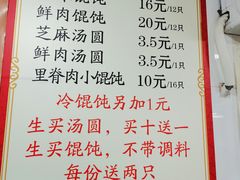 馄饨 16元/12只
鲜肉馄饨 20元/12只
芝麻汤圆 3.5元/1只
鲜肉汤圆 3.5元/1只
里脊肉小馄饨 10元/16只
冷馄饨另加1元
生买汤圆，买十送一
生买馄饨，不带调料
每份送两只